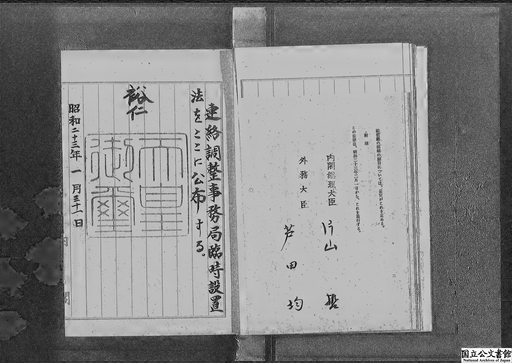 内閣總理大臣 片山 哲
外務大臣 芦田 均
連絡調整事務局臨時設置
法をここに公布する。
裕仁
天皇御璽
昭和二十三年一月三十一日
国立公文書館
National Archives of Japan